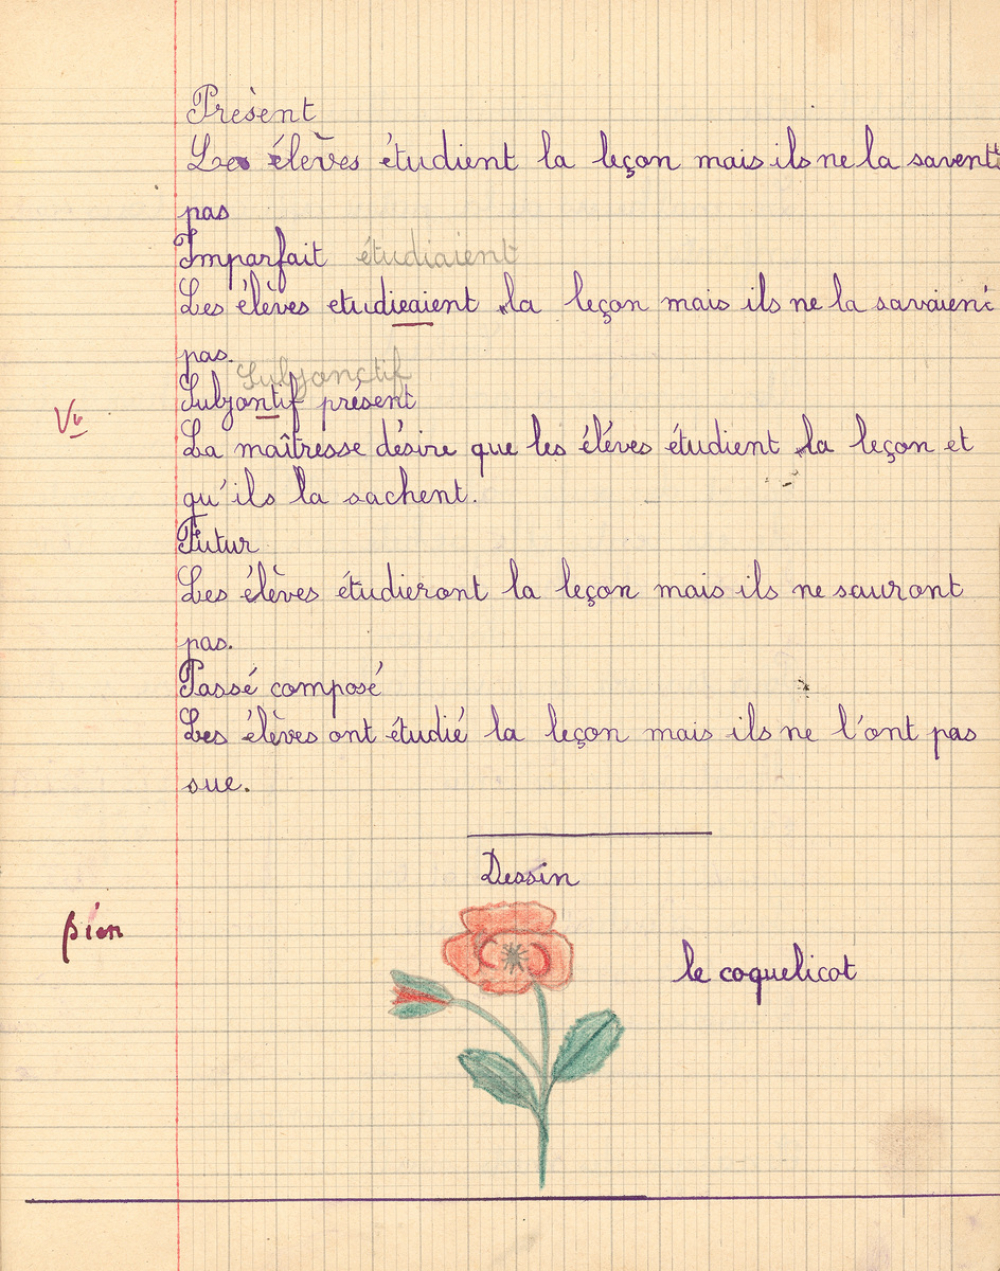 Présent
Les élèves étudient la leçon mais ils ne la savent
pas
Imparfait étudiaient
Les élèves etudieaient la leçon mais ils ne la savaient
pas.
Subjonctif
Subjontif présent
Vu
La maîtresse désire que les éléves étudient la leçon et
qu'ils la sachent.
Futur
Les élèves étudieront la leçon mais ils ne sauront
pas.
Passé composé
Les élèves ont étudié la leçon mais ils ne l'ont pas
sue.
Dessin
bien
le coquelicot